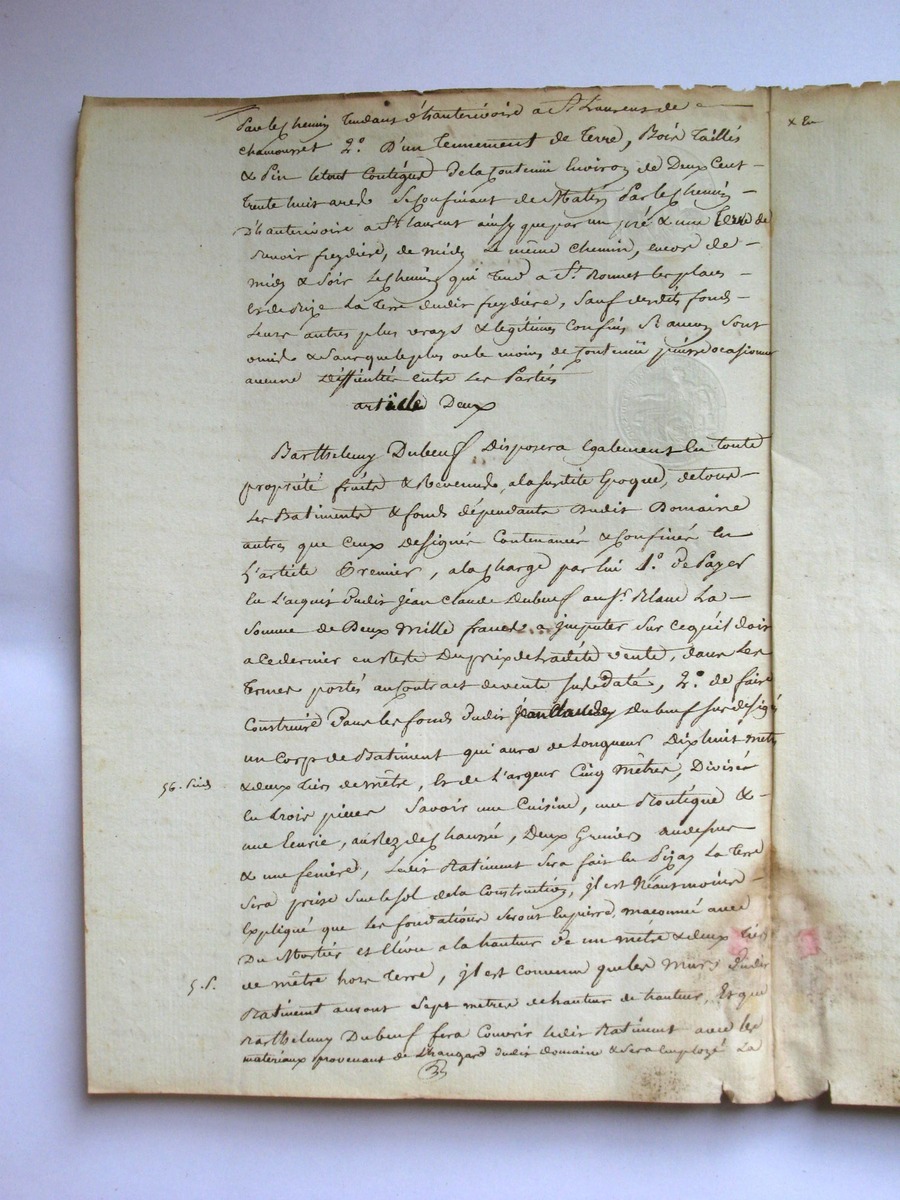 Par le Chemin tendant d'hauterivoire a St Laurent de
chamousset 2.° D'un Tennement de Terre, Bois Taillés
& Pin le tout Contigue de la Contenüe Environ de Deux Cent
trente huit ares Se Confinant de Matin Par le Chemin
D'hauterivoire a St Laurent ainsy que par un pré & une terre de
freydiere, de midy le même chemin, encore de
midy & Soir Le Chemin qui tend a St Bonnet les places
Et de Bize La terre dudit freydiere, Sauf desdits fonds
Leurs autres plus vrays & legitimes Confins Si aucun Sont
omis & Sans que le plus ou le moins de Contenüe puisse ocasionner
aucune Difficultés entre Les Parties
article Deux
Barthelemy Dubeuf Disposera Egalement En toute
propriété fruits & Revenus, a la susdite Epoque, de tous
Les Batiments & fonds dépendants Dudit Domaine
autres que Ceux Designés Contenancés & Confinés En
L'article Premier, a la Charge par lui 1.° de Payer
En L'acquit Dudit Jean Claude Dubeuf au Sr. Blanc La
Somme de Deux Mille francs a jmputer Sur Ce qu'il doit
a Ce dernier en reste Du prix de ladite vente, dans Les
termes portés au Contract de vente Sus Daté, 2.° de faire
Construire Dans les fonds Dudit Jean Claude Dubeuf Sus désigné
un Corps de Batiment qui aura de Longueur Dix huit metres
56. Pieds
& deux tiers de mêtre, Et de Largeur Cinq Mêtres, Divisée
En trois pieces Savoir une Cuisine, une Boutique &
une Ecurie, au Rez de Chaussée, Deux Greniers au dessus
& une feniere, Ledit Batiment Sera fait En Pizay La terre
Sera prise Sur le Sol de la Construction, jl est Néantmoins
Expliqué que les fondations Seront En pierre, maconnée avec
Du Mortier et Elevée a la hauteur de un mêtre & deux tiers
5. P.
de mêtre hors Terre, jl est Convenu que les Murs Dudit
Batiment auront Sept mêtres de hauteur de hauteur, Et que
Barthelemy Dubeuf fera Couvrir Ledit Batiment avec les
materiaux provenant de L'hangard Dudit domaine & Sera Employé La
x En